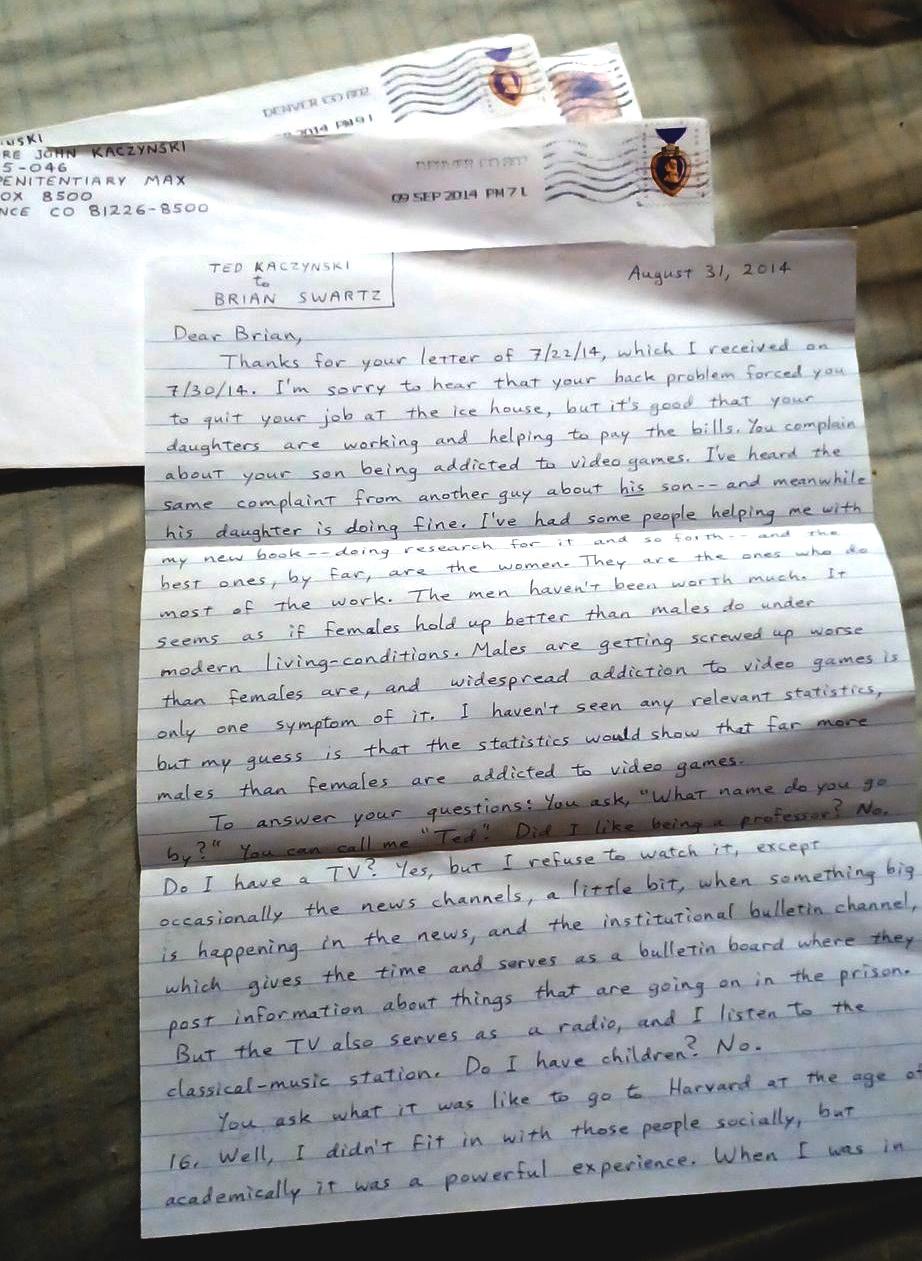 DENVER CO 802
2014 PM 9 L
NSKI
RE JOHN KACZYNSKI
5-046
ENITENTIARY MAX
OX 8500
NCE CO 81226-8500
DENVER CO 802
09 SEP 2014 PM 7 L
TED KACZYNSKI
to
BRIAN SWARTZ
August 31, 2014
Dear Brian,
Thanks for your letter of 7/22/14, which I received on
7/30/14. I'm sorry to hear that your back problem forced you
to quit your job at the ice house, but it's good that your
daughters are working and helping to pay the bills. You complain
about your son being addicted to video games. I've heard the
same complaint from another guy about his son-- and meanwhile
his daughter is doing fine. I've had some people helping me with
my new book-- doing research for it and so forth-- and the
best ones, by far, are the women. They are the ones who do
most of the work. The men haven't been worth much. It
seems as if females hold up better than males do under
modern living-conditions. Males are getting screwed up worse
than females are, and widespread addiction to video games is
only one symptom of it. I haven't seen any relevant statistics,
but my guess is that the statistics would show that far more
males than females are addicted to video games.
To answer your questions: You ask, "What name do you go
by?" You can call me "Ted". Did I like being a professor? No.
Do I have a TV? Yes, but I refuse to watch it, except
occasionally the news channels, a little bit, when something big
is happening in the news, and the institutional bulletin channel,
which gives the time and serves as a bulletin board where they
post information about things that are going on in the prison.
But the TV also serves as a radio, and I listen to the
classical-music station. Do I have children? No.
You ask what it was like to go to Harvard at the age of
16. Well, I didn't fit in with those people socially, but
academically it was a powerful experience. When I was in